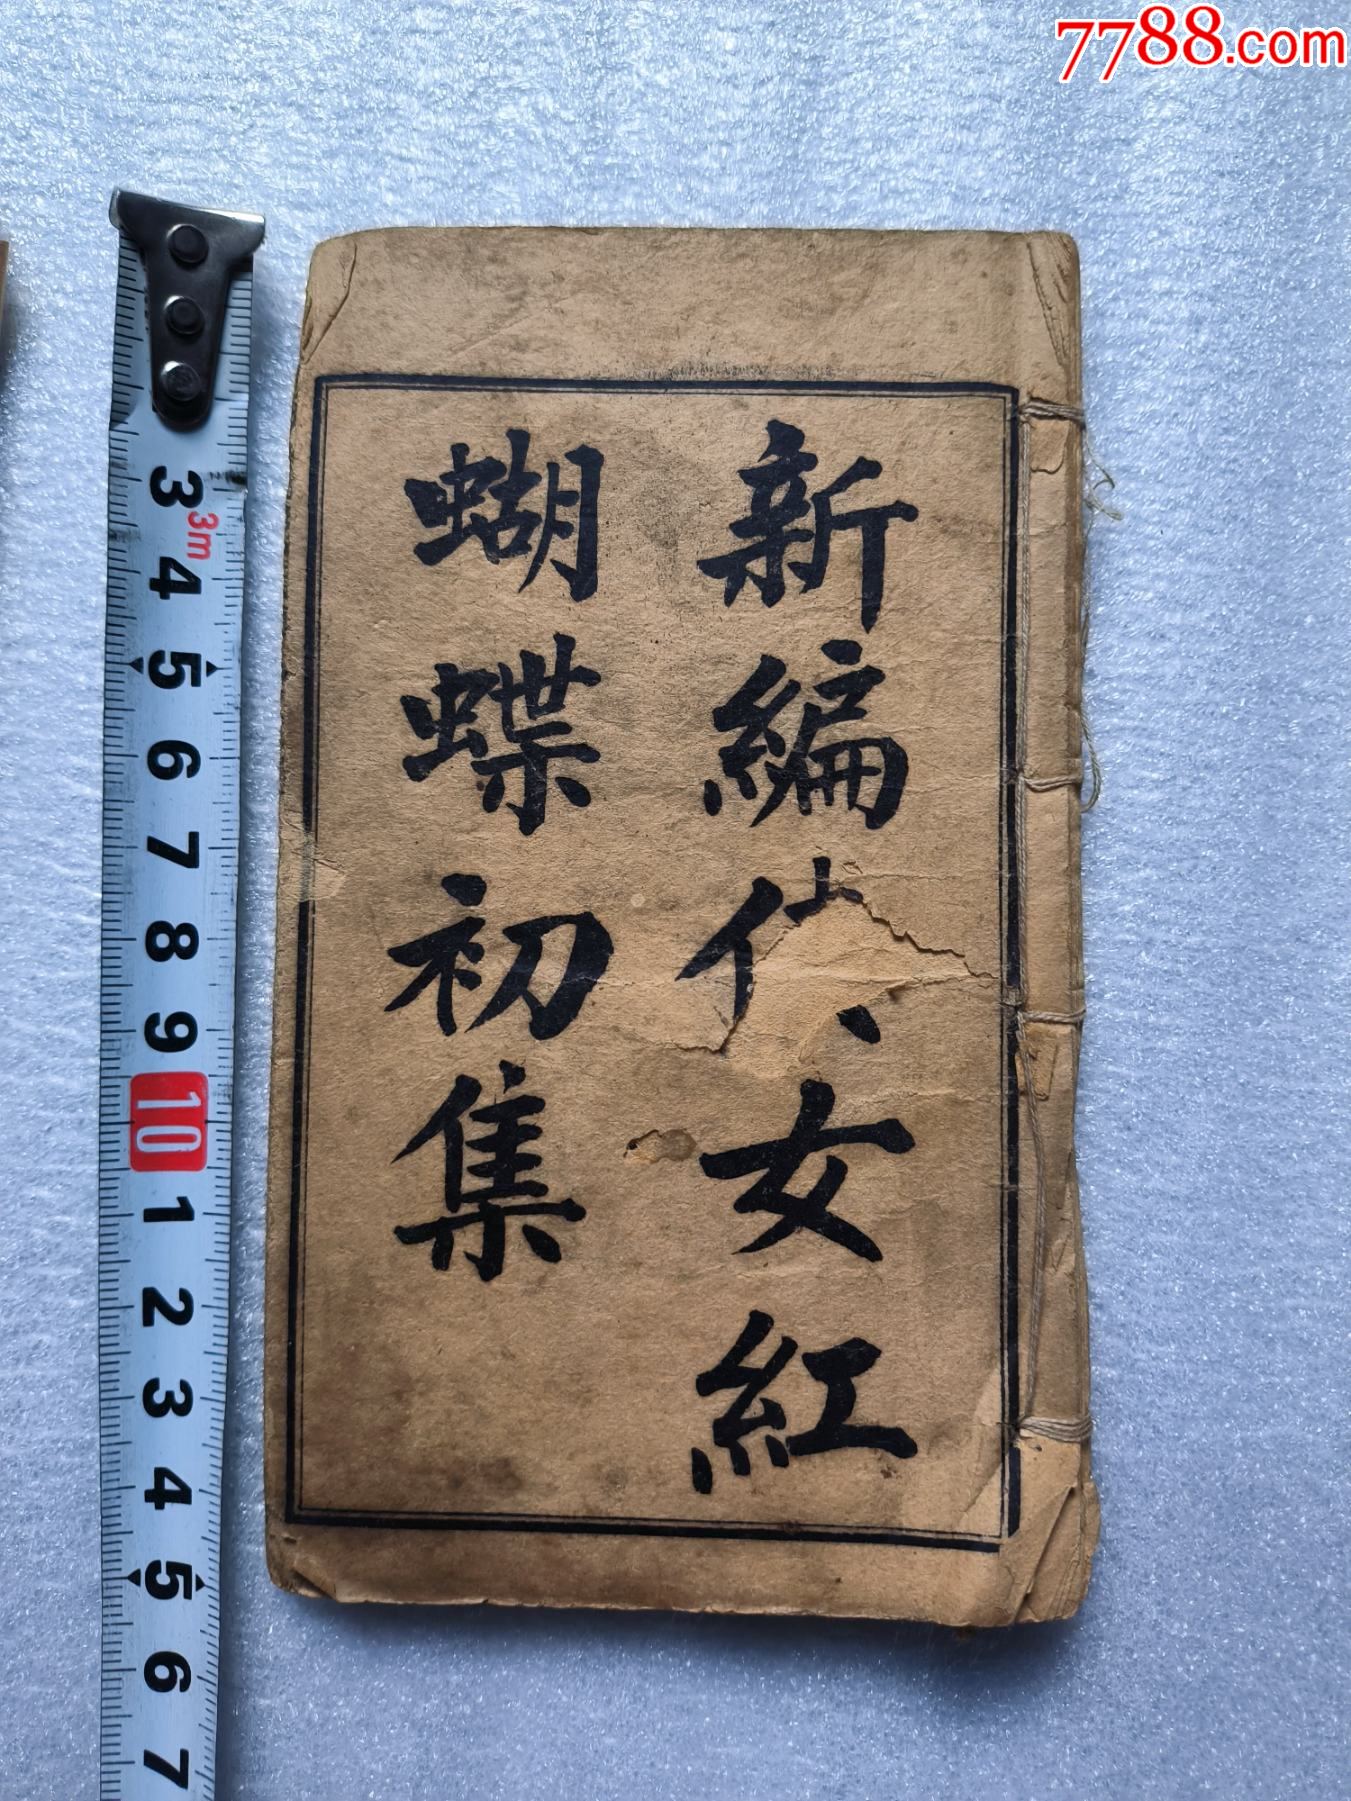 7788.com
新編
女紅
蝴蝶初集
3
3m
4
5
6
7
8
9
10
1
2
3
4
5
6
7